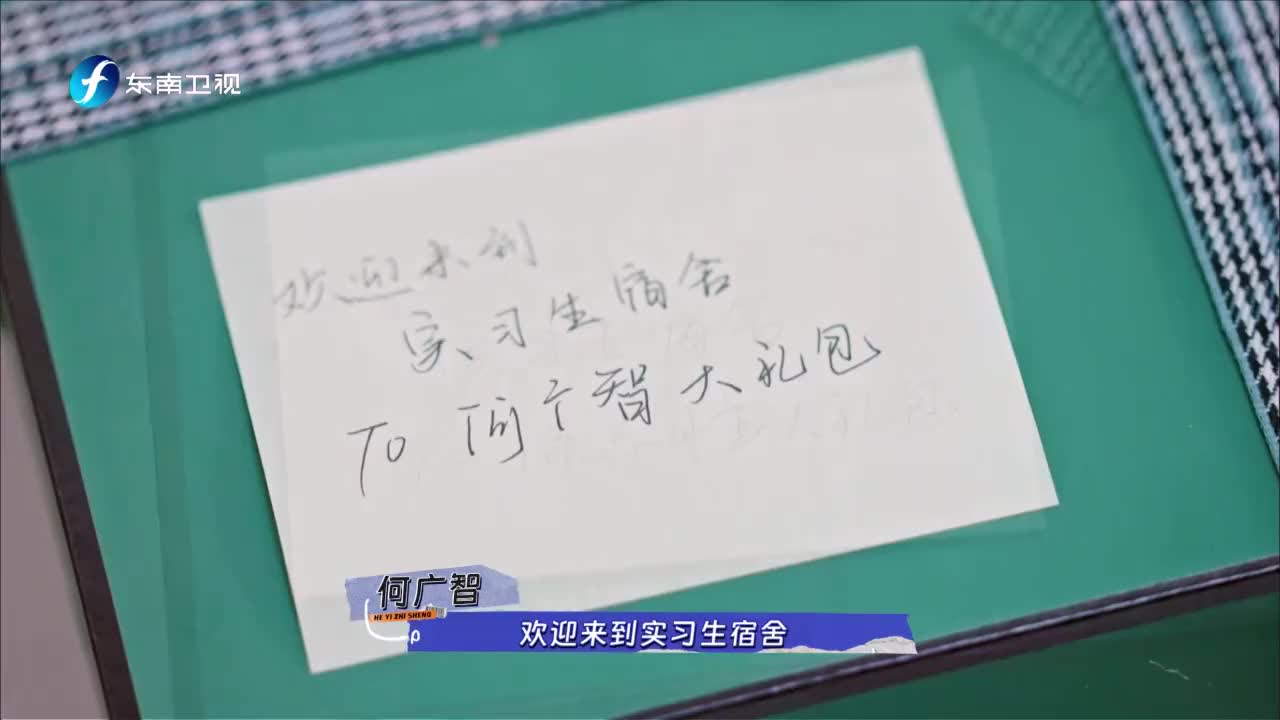 东南卫视
欢迎来到
实习生宿舍
TO 何广智大礼包
何广智
HE YI ZHI SHENG
欢迎来到实习生宿舍